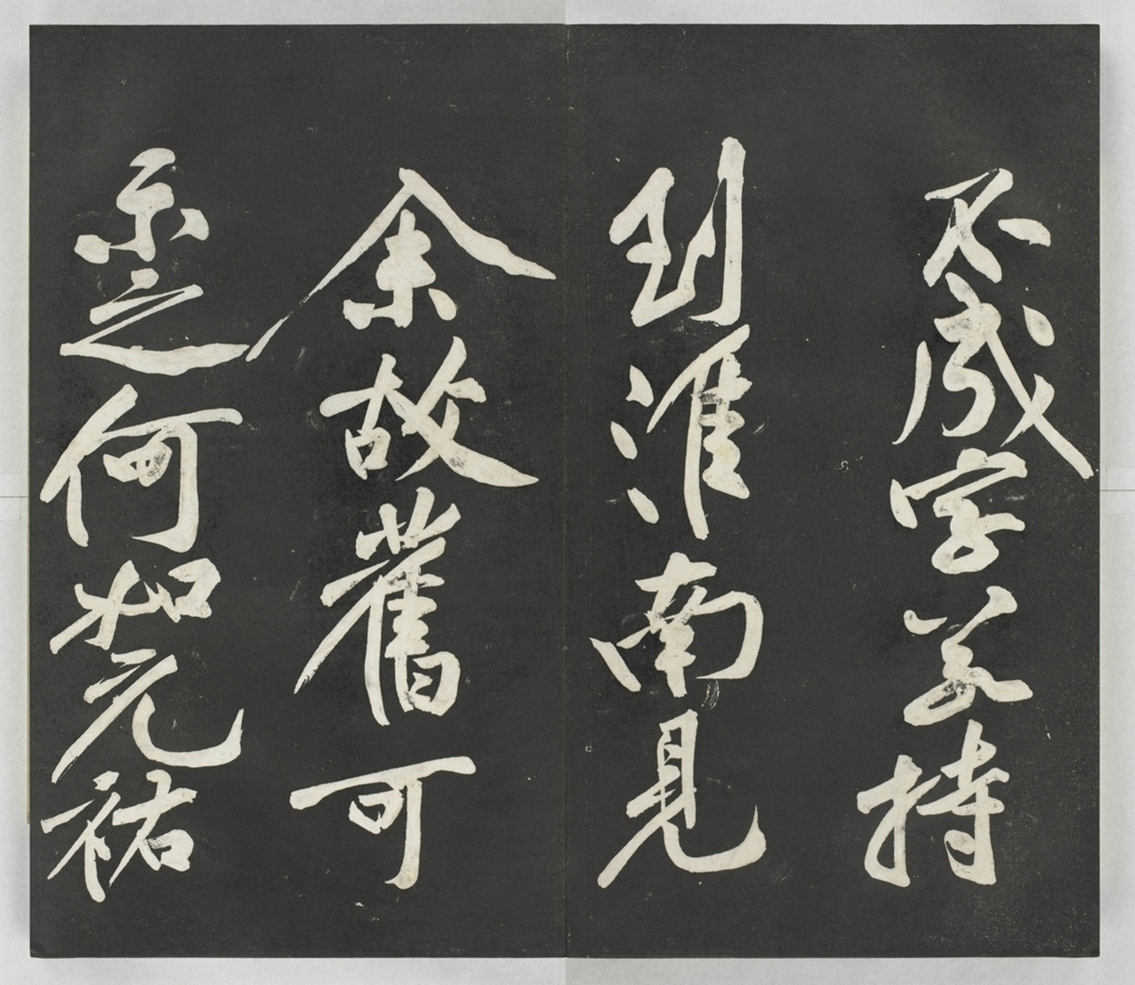 不成字若持
到淮南見
余故舊可
示之何如元祐